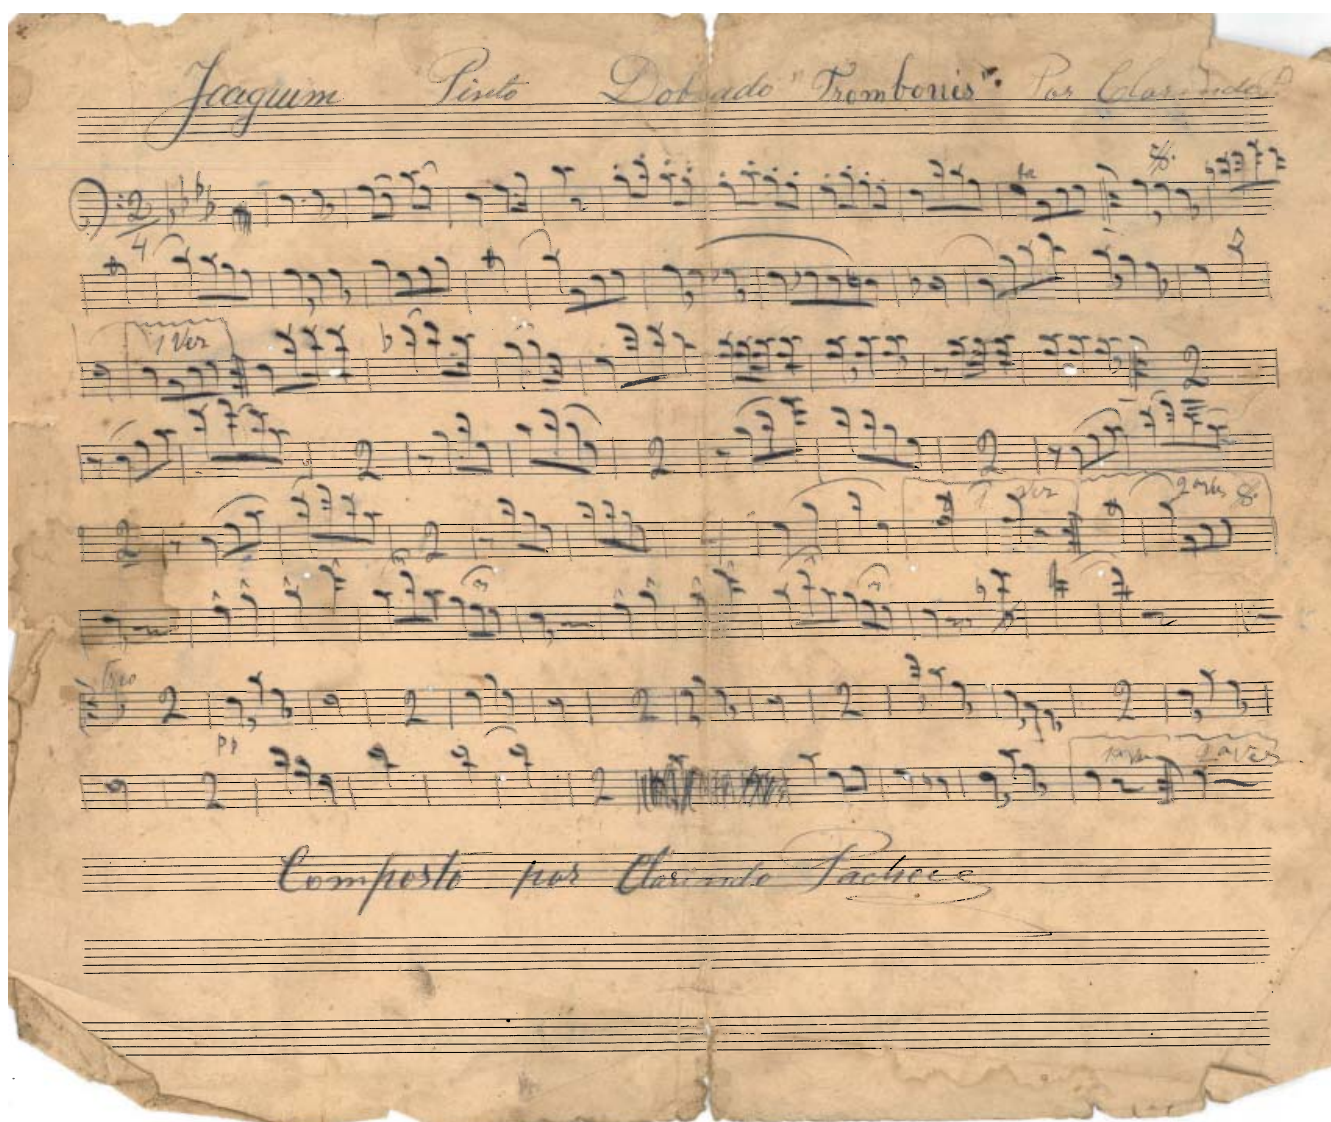 Joaquim Pinto Dobrado "Trombonis" Por Clarindo P.
2
4
1 Vez
2
2 2 2
1 Vez 2 a vez
2 2
Trio
2 2 2 2 2
pp
2 2 1a vez 2a Vez
Composto por Clarindo Pacheco